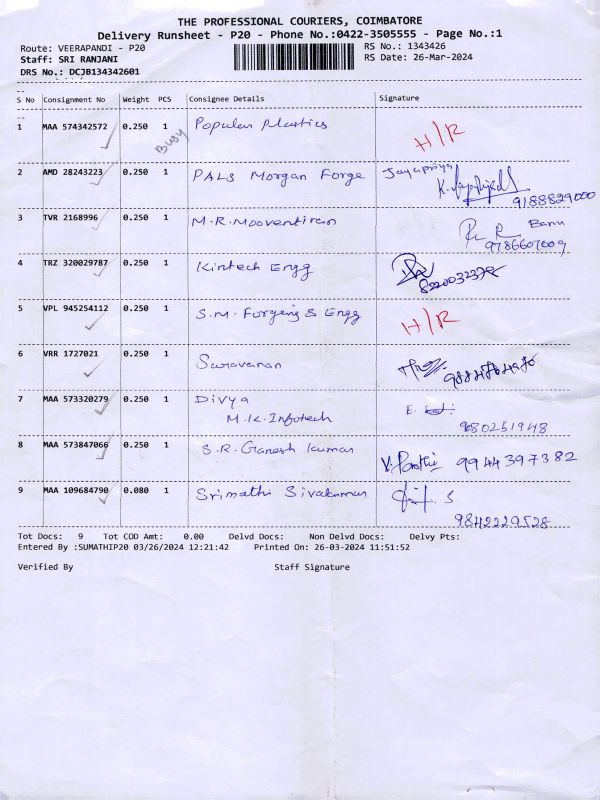 THE PROFESSIONAL COURIERS, COIMBATORE
Delivery Runsheet - P20 - Phone No.:0422-3505555 - Page No.:1
Route: VEERAPANDI - P20 RS No.: 1343426
Staff: SRI RANJANI RS Date: 26-Mar-2024
DRS No.: DCJB134342601
S No Consignment No Weight PCS Consignee Details Signature
1 MAA 574342572 0.250 1 Busy Popular Plastics H/R
2 AMD 28243223 0.250 1 PALS Morgan Forge Jayapriya
9188829000
3 TVR 2168996 0.250 1 M.R.Mooventiran Banu
9786607009
4 TRZ 320029787 0.250 1 Kintech Engg
8220032372
5 VPL 945254112 0.250 1 S.M. Forging & Engg H/R
6 VRR 1727021 0.250 1 Saravanan
7 MAA 573320279 0.250 1 Divya
M.K.Infotech
9680251948
8 MAA 573847066 0.250 1 S.R. Ganesh kumar 9944397382
9 MAA 109684790 0.080 1 Srimathi Sivakumar
9842229528
Tot Docs: 9 Tot COD Amt: 0.00 Delvd Docs: Non Delvd Docs: Delvy Pts:
Entered By :SUMATHIP20 03/26/2024 12:21:42 Printed On: 26-03-2024 11:51:52
Verified By Staff Signature